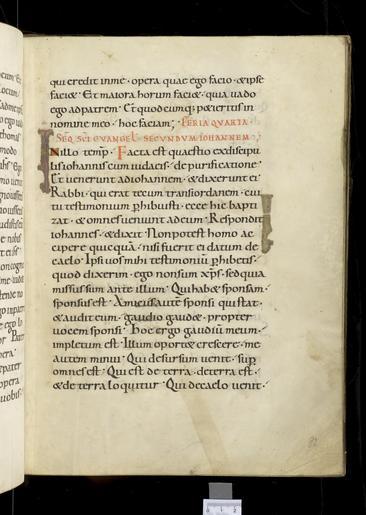 qui credit inme · opera quae ego facio · & ipse
faci& · Et maiora horum faci& · quia uado
ego adpatrem · Et quodcumq; petieritis in
nomine meo · hoc faciam; FERIA QUARTA ·
SEQ SCI EVANGEL SECUNDUM IOHANNEM ·
INillo temp̄ · Facta est quaestio exdiscipu
lisiohannis cum iudaeis · de purificatione ·
Et uenerunt adiohannem · & dixerunt ei ·
Rabbi · qui erat tecum transiordanen · cui
tu testimonium p̱hibuisti · ecce hic bapti
zat · & omnes ueniunt adeum · Respondit
iohannes · & dixit · Nonpotest homo ac
cipere quicquā · nisi fuerit ei datum de
caelo · Ipsi uos mihi testimoniū p̱hib&is ·
quod dixerim · ego nonsum xp̄s · sedquia
missus sum ante illum · Qui hab& sponsam ·
sponsus est · Amicus autē sponsi qui stat ·
& audit eum · gaudio gaud& · propter
uocem sponsi · Hoc ergo gaudiū meum ·
impletum est · Illum oport& crescere · me
autem minui · Qui desursum uenit · sup̱
omnes est · Qui est de terra · deterra est ·
& de terra loquitur · Qui decaelo uenit ·